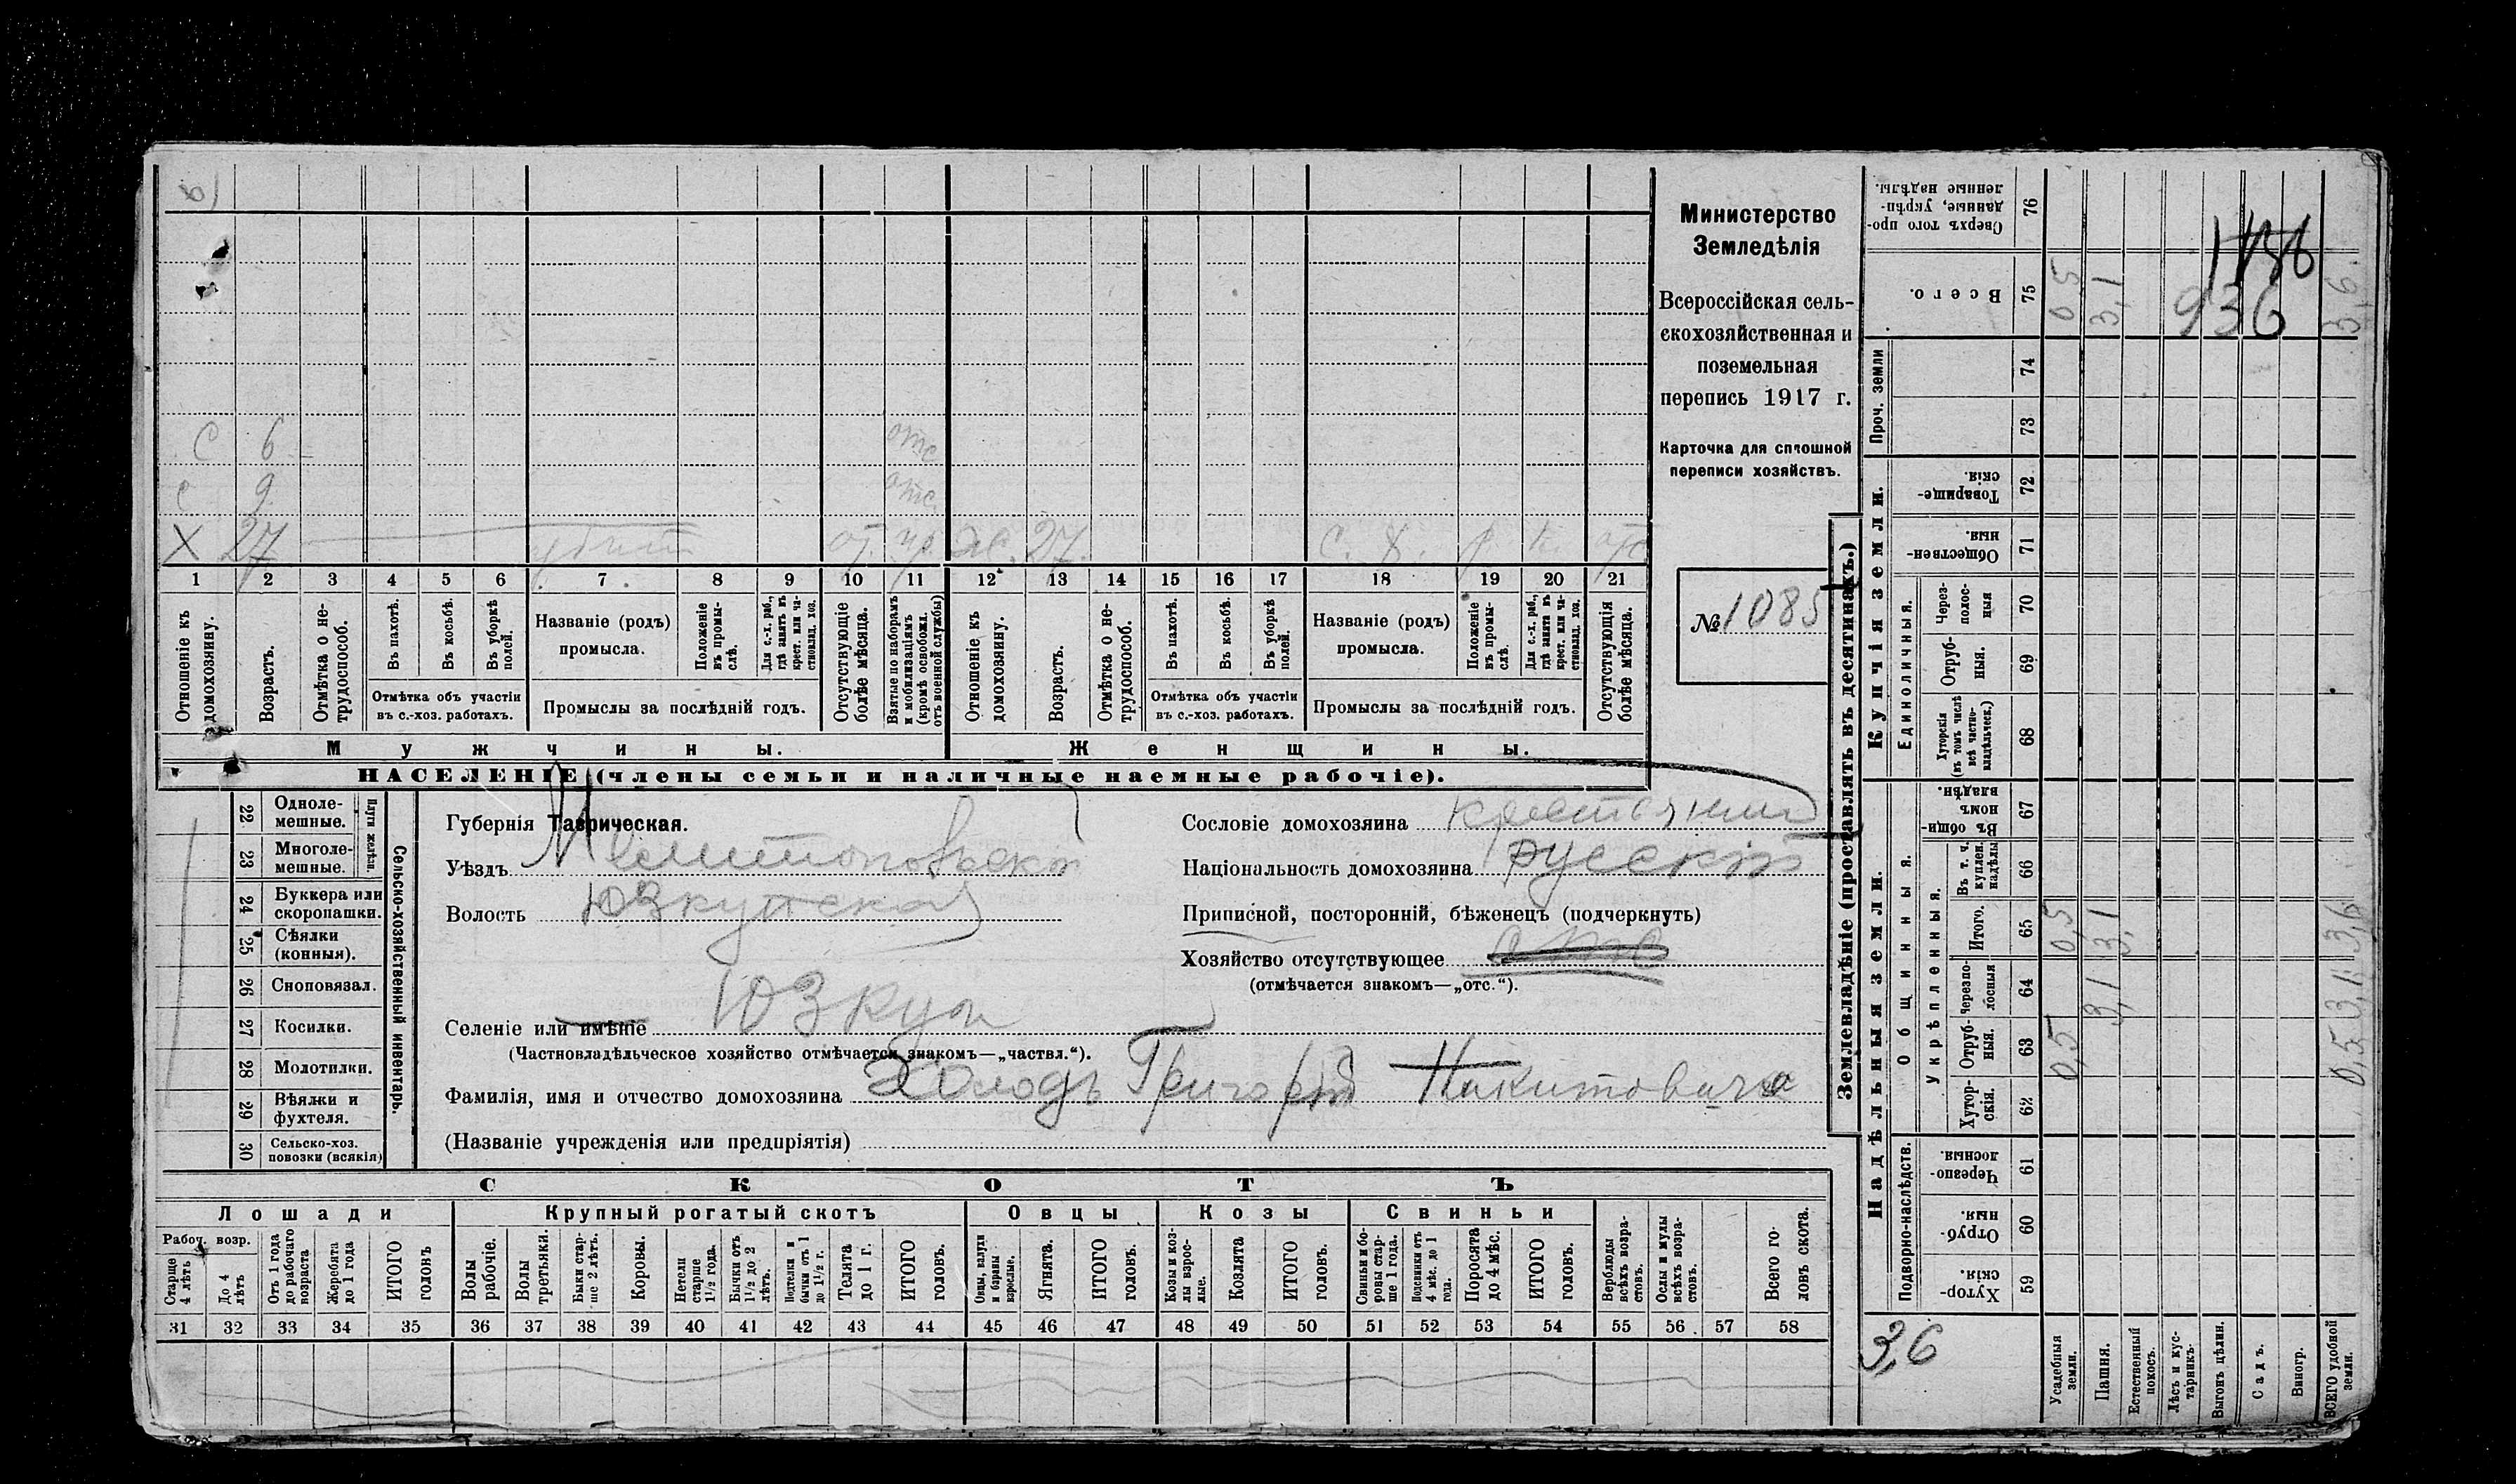 С 6 отс
с 9 отс.
Х 27 убит от. ж. 27. с. х. р. отс
1 2 3 4 5 6 7 8 9 10 11 12 13 14 15 16 17 18 19 20 21
Отношеніе къ домохозяину.
Возрастъ.
Отмѣтка о нетрудоспособ.
Въ пахотѣ.
Въ косьбѣ.
Въ уборкѣ полей.
Отмѣтка объ участіи въ с.-хоз. работахъ.
Названіе (родъ) промысла.
Положеніе въ промыслѣ.
Для с.-х. раб., гдѣ занятъ въ крест. или частновлад. хоз.
Промыслы за послѣдній годъ.
Отсутствующіе болѣе мѣсяца.
Взятые по наборамъ и мобилизаціямъ (кромѣ освобожд. отъ военной службы)
Отношеніе къ домохозяину.
Возрастъ.
Отмѣтка о нетрудоспособ.
Въ пахотѣ.
Въ косьбѣ.
Въ уборкѣ полей.
Отмѣтка объ участіи въ с.-хоз. работахъ.
Названіе (родъ) промысла.
Положеніе въ промыслѣ.
Для с.-х. раб., гдѣ занята въ крест. или частновлад. хоз.
Промыслы за послѣдній годъ.
Отсутствующія болѣе мѣсяца.
Мужчины. Женщины.
НАСЕЛЕНІЕ (члены семьи и наличные наемные рабочіе).
Министерство
Земледѣлія
Всероссійская сель-
скохозяйственная и
поземельная
перепись 1917 г.
Карточка для сплошной
переписи хозяйствъ.
№ 1085
22 Одноле-
мешные.
23 Многоле-
мешные.
Плуги желѣзн.
24 Буккера или
скоропашки.
25 Сѣялки
(конныя).
26 Сноповязал.
27 Косилки.
28 Молотилки.
29 Вѣялки и
фухтеля.
30 Сельско-хоз.
повозки (всякія)
Сельско-хозяйственный инвентарь.
Губернія Таврическая.
Уѣздъ Мелитопольскій
Волость Юзкуйская
Селеніе или имѣніе Юзкуи
(Частновладѣльческое хозяйство отмѣчается знакомъ—„частвл.“).
Фамилія, имя и отчество домохозяина Холодъ Григорій Никитовичъ
(Названіе учрежденія или предпріятія)
Сословіе домохозяина крестьянин
Національность домохозяина русскій
Приписной, посторонній, бѣженецъ (подчеркнуть)
Хозяйство отсутствующее отс
(отмѣчается знакомъ—„отс.“).
СКОТЪ
Лошади Крупный рогатый скотъ Овцы Козы Свиньи
Рабоч. возр.
Старше 4 лѣтъ
До 4 лѣтъ
Отъ 1 года до рабочаго возраста
Жеребята до 1 года
ИТОГО головъ
Волы рабочіе.
Волы третьяки.
Быки старше 2 лѣтъ.
Коровы.
Нетели старше 1½ года.
Бычки отъ 1½ до 2 лѣтъ.
Подтелки и бычки отъ 1 до 1½ г.
Телята до 1 г.
ИТОГО головъ.
Овцы, валухи и бараны взрослые.
Ягнята.
ИТОГО головъ.
Козы и козлы взрослые.
Козлята
ИТОГО головъ.
Свиньи и боровы старше 1 года.
Подсвинки отъ 4 мѣс. до 1 года.
Поросята до 4 мѣс.
ИТОГО головъ.
Верблюды всѣхъ возрастовъ.
Ослы и мулы всѣхъ возрастовъ.
Всего головъ скота.
31 32 33 34 35 36 37 38 39 40 41 42 43 44 45 46 47 48 49 50 51 52 53 54 55 56 57 58
Землевладѣніе (проставлять въ десятинахъ.)
Сверхъ того проданные, укрѣпленные надѣлы. 76
Всего. 75 0 5 3,1 3,6
936
Проч. земли 74
73
Купчія земли.
Товарищескія 72
Общественныя. 71
Единоличныя.
Черезполосныя 70
Отрубныя. 69
Хуторскія (въ томъ числѣ всѣ частновладѣльческ.) 68
Надѣльныя земли.
Общинныя.
Въ общинномъ владѣн. 67
Укрѣпленныя.
Въ т. ч. куплен. надѣлы 66
Итого. 65 0,5 3,1 3,6
Черезполосныя 64 3,1 3,1
Отрубныя. 63 0,5 0,5
Хуторскія. 62
Подворно-наслѣдств.
Черезполосныя. 61
Отрубныя. 60
Хуторскія. 59
3,6
Усадебныя земли.
Пашня.
Естественный покосъ.
Лѣсъ и кустарникъ.
Выгонъ цѣлин.
Садъ.
Виногр.
ВСЕГО удобной земли.